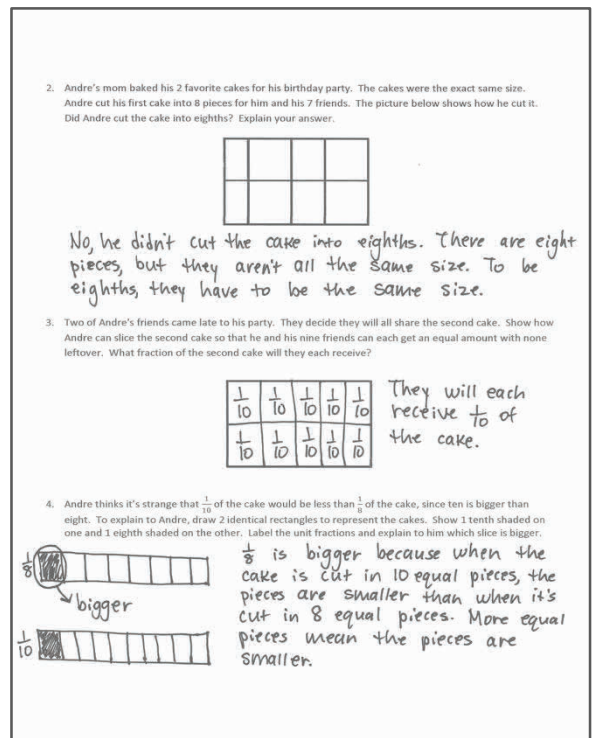 2. Andre's mom baked his 2 favorite cakes for his birthday party. The cakes were the exact same size.
Andre cut his first cake into 8 pieces for him and his 7 friends. The picture below shows how he cut it.
Did Andre cut the cake into eighths? Explain your answer.
No, he didn't cut the cake into eighths. There are eight
pieces, but they aren't all the same size. To be
eighths, they have to be the same size.
3. Two of Andre's friends came late to his party. They decide they will all share the second cake. Show how
Andre can slice the second cake so that he and his nine friends can each get an equal amount with none
leftover. What fraction of the second cake will they each receive?
1/10 1/10 1/10 1/10 1/10
1/10 1/10 1/10 1/10 1/10
They will each
receive 1/10 of
the cake.
4. Andre thinks it's strange that 1/10 of the cake would be less than 1/8 of the cake, since ten is bigger than
eight. To explain to Andre, draw 2 identical rectangles to represent the cakes. Show 1 tenth shaded on
one and 1 eighth shaded on the other. Label the unit fractions and explain to him which slice is bigger.
1/8
bigger
1/10
1/8 is bigger because when the
cake is cut in 10 equal pieces, the
pieces are smaller than when it's
cut in 8 equal pieces. More equal
pieces mean the pieces are
smaller.